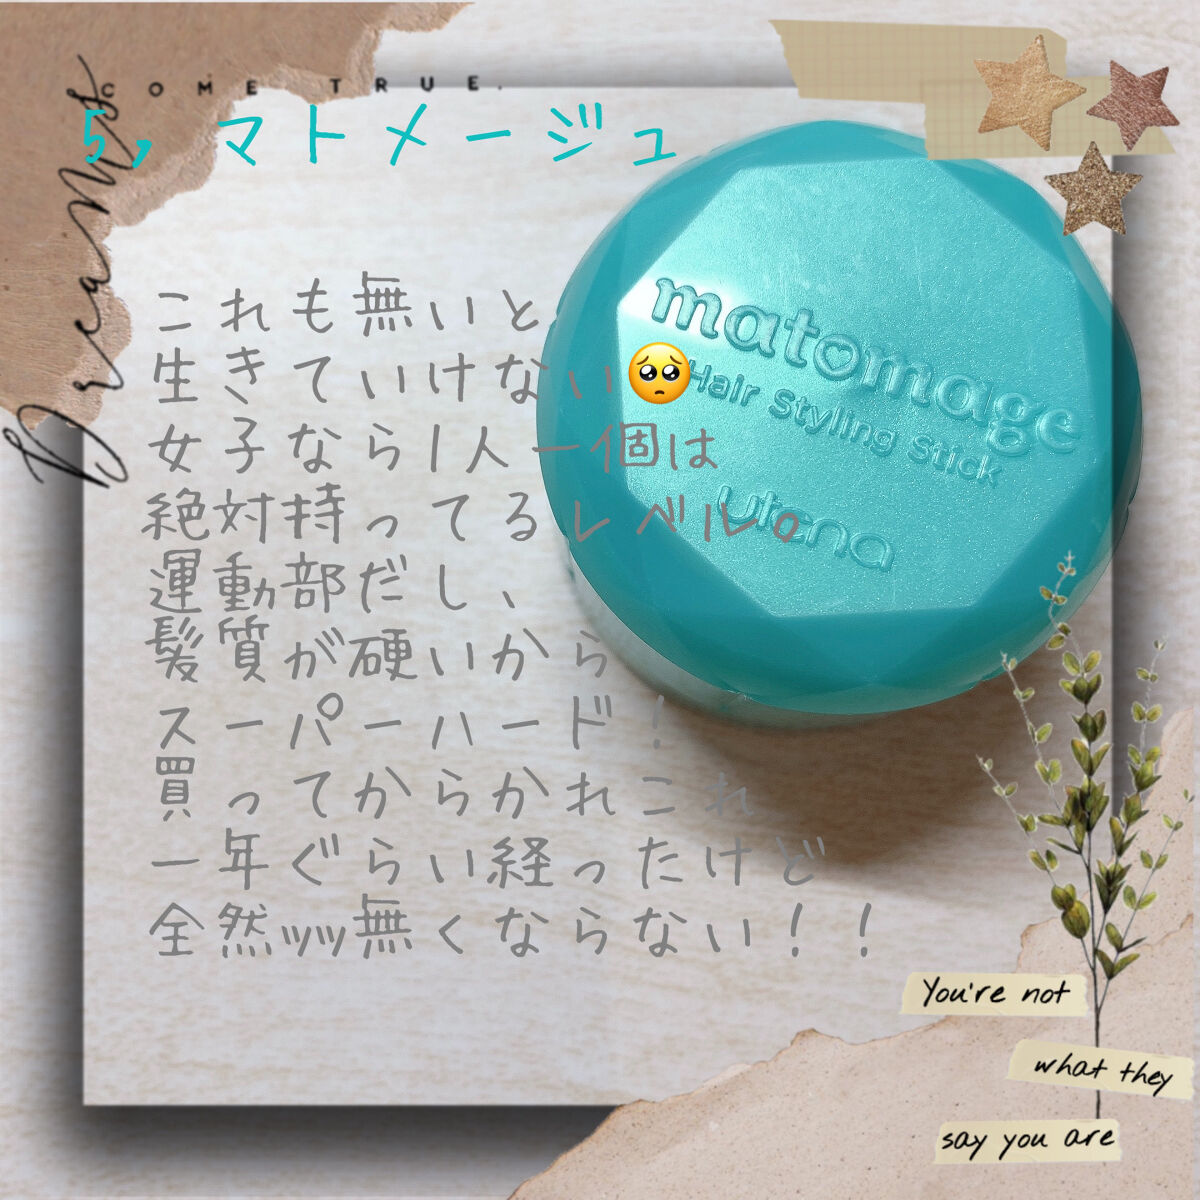 COME TRUE.
Dreams
5, マトメージュ
これも無いと
生きていけない🥺
女子なら1人一個は
絶対持ってるレベル。
運動部だし、
髪質が硬いから
スーパーハード!
買ってからかれこれ、
一年ぐらい経ったけど
全然ッッ無くならない!!
matomage
Hair Styling Stick
utena
You're not
what they
say you are